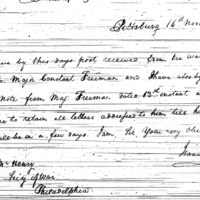 Pittsburg 16th Nov
ve by this days post received from the war
Majr Constant Freeman and I have also by
Note from Maj. Freeman dated 13th instant a
me to retain all letters addressed to him till he
will be in a few days. I am, Sir, Your very Obe
Isaac
Mc Henry
Secy of War
Philadelphia